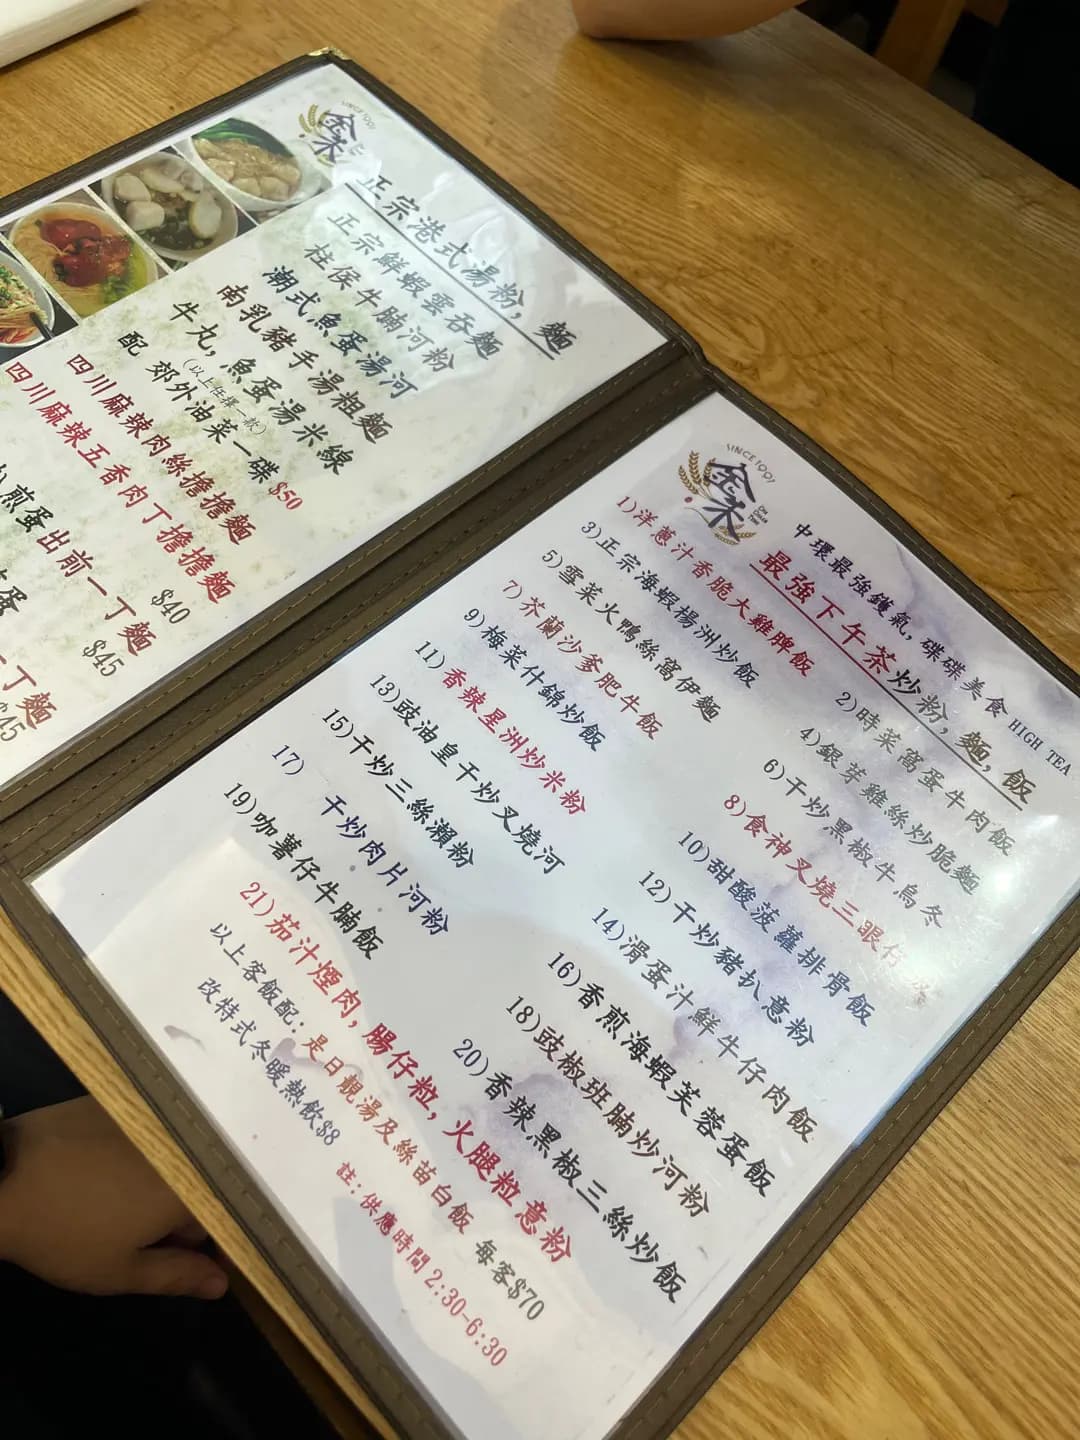 SINCE 1991
金禾
正宗港式湯粉,麵
正宗鮮蝦雲吞麵
柱侯牛腩河粉
潮式魚蛋湯河
南乳豬手湯粗麵
牛丸,魚蛋湯米線
(以上任擇一款)
配 郊外油菜一碟 $50
四川麻辣肉絲擔擔麵
四川麻辣五香肉丁擔擔麵
$40
煎蛋出前一丁麵
$45
蛋
丁麵
$45
SINCE 1991
金禾
中環最強鑊氣,碟碟美食 HIGH TEA
最強下午茶炒粉,麵,飯
1)洋蔥汁香脆大雞脾飯
2)時菜窩蛋牛肉飯
3)正宗海蝦楊洲炒飯
4)銀芽雞絲炒脆麵
5)雪菜火鴨絲窩伊麵
6)干炒黑椒牛烏冬
7)芥蘭沙爹肥牛飯
8)食神叉燒三眼仔
9)梅菜什錦炒飯
10)甜酸菠蘿排骨飯
11)香辣星洲炒米粉
12)干炒豬扒意粉
13)豉油皇干炒叉燒河
14)滑蛋汁鮮牛仔肉飯
15)干炒三絲瀨粉
16)香煎海蝦芙蓉蛋飯
17) 干炒肉片河粉
18)豉椒班腩炒河粉
19)咖薯仔牛腩飯
20)香辣黑椒三絲炒飯
21)茄汁煙肉,腸仔粒,火腿粒意粉
以上客飯配:是日靚湯及絲苗白飯 每客$70
改特式冬暖熱飲$8
註:供應時間2:30-6:30